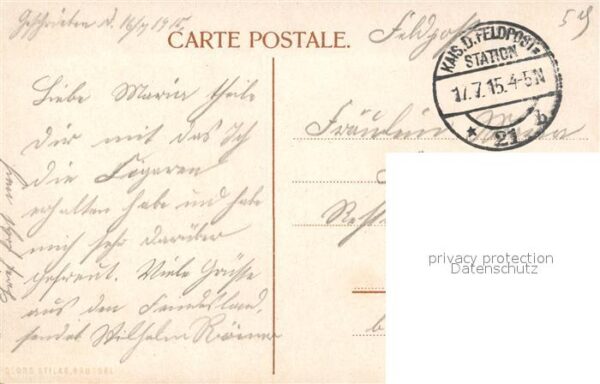 Geschrieben d. 16/7 1915.
CARTE POSTALE.
Feldpost
KAIS. D. FELDPOST=
STATION
17.7.15. 4-5N
* 21 b
Liebe Maria theile
Dir mit das Ich
die Cigaren
erhalten habe und habe
mich sehr darüber
gefreut. Viele Grüsse
aus dem Feindesland,
sendet Wilhelm Römer
Fräulein
privacy protection
Datenschutz